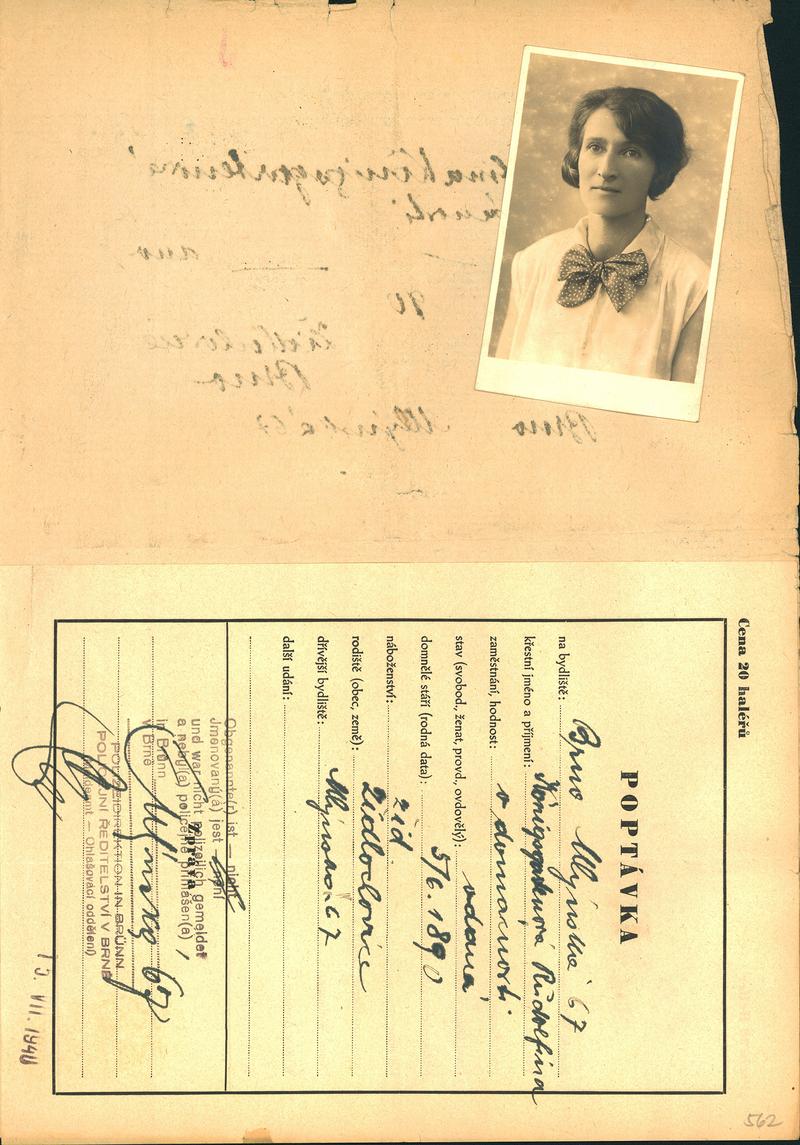 Cena 20 haléřů
POPTÁVKA
na bydliště: Brno Mlýnská 67
křestní jméno a příjmení: Königsgartenová Rudolfina
zaměstnání, hodnost: v domacnosti
stav (svobod., ženat, provd., ovdovělý): vdaná
domnělé stáří (rodná data): 5/6. 1890
náboženství: žid
rodiště (obec, země): Židlochovice
dřívější bydliště: Mlýnská 67
další udání:
Zpráva:
Obgenannte(r) ist — nicht
Jmenovaný(á) jest — není
und war nicht polizeilich gemeldet
a nebyl(a) policejně přihlášen(a)
in Brünn
v Brně
Mlýnská 67
POLIZEIDIREKTION IN BRÜNN
POLICEJNÍ ŘEDITELSTVÍ V BRNĚ
— Ohlašovací oddělení)
VII. 1940
562
ano
90
Židlochovice
Brno
Brno Mlýnská 67